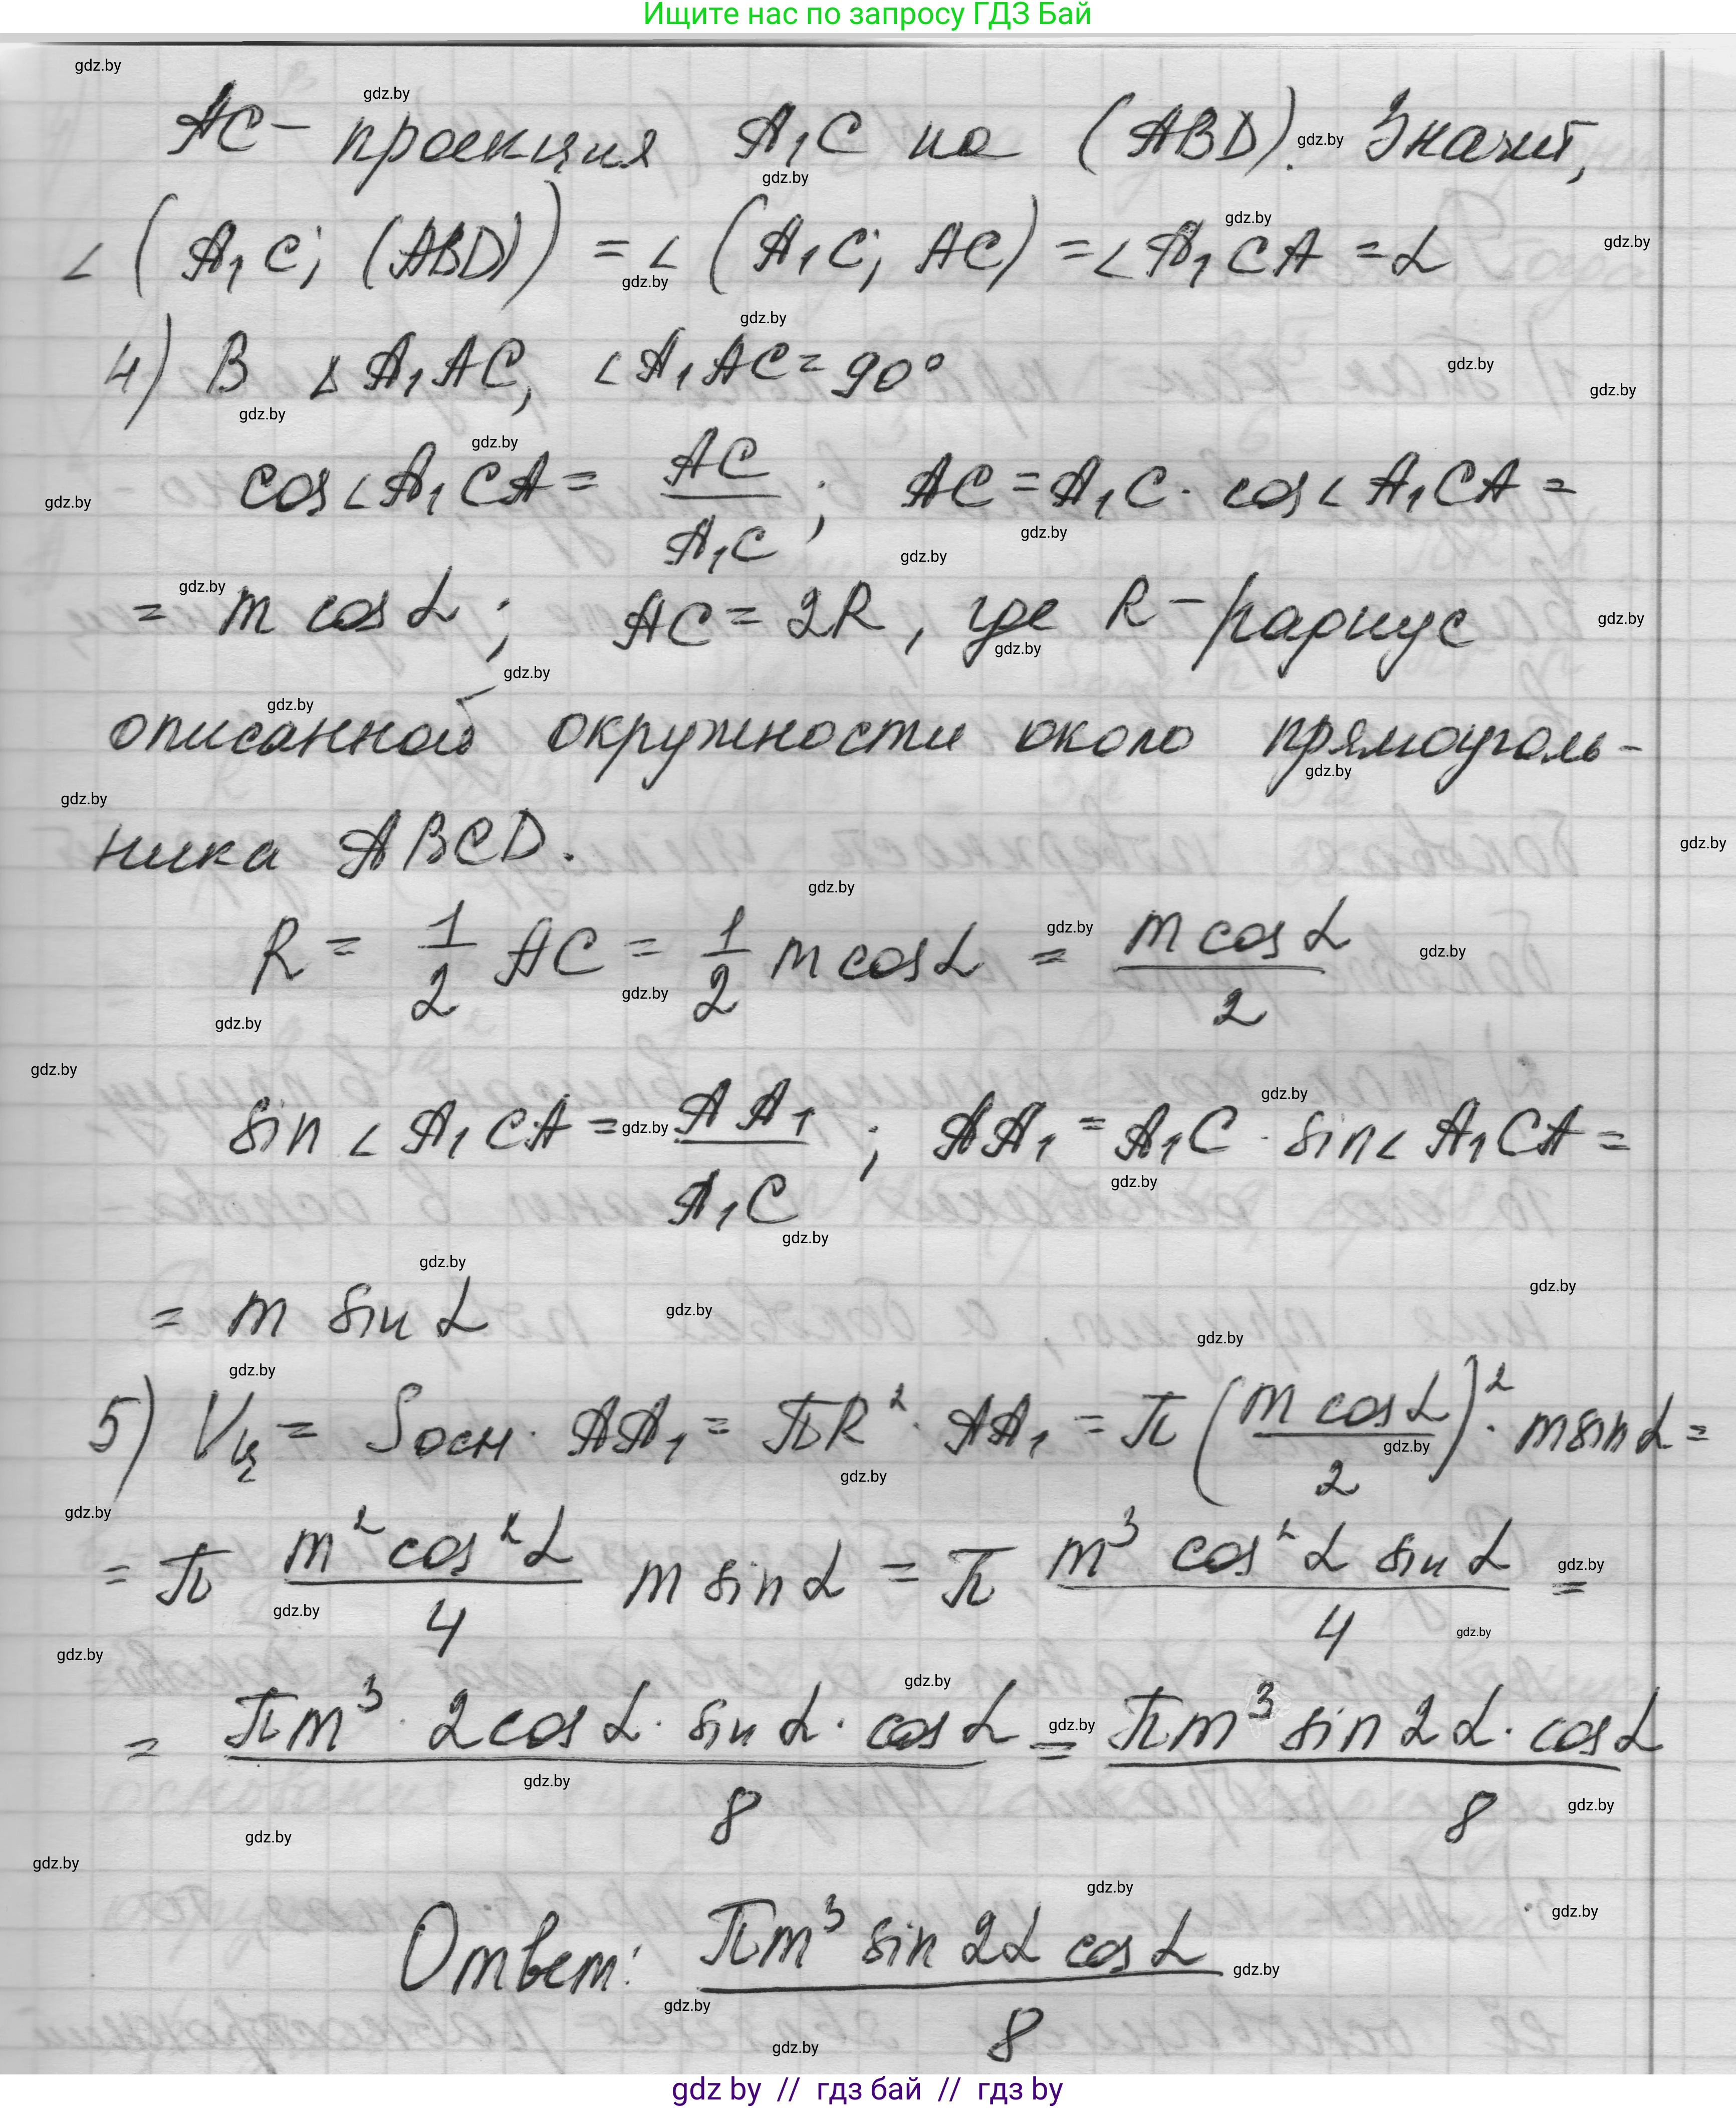 Ищите нас по запросу ГДЗ Бай
AC - проекция A₁C на (ABD). Значит,
∠(A₁C; (ABD)) = ∠(A₁C; AC) = ∠A₁CA = α
4) В ΔA₁AC, ∠A₁AC = 90°
cos∠A₁CA = AC/A₁C; AC = A₁C · cos∠A₁CA =
= m cos α; AC = 2R, где R - радиус
описанной окружности около прямоуголь-
ника ABCD.
R = 1/2 AC = 1/2 m cos α = (m cos α)/2
sin∠A₁CA = AA₁/A₁C; AA₁ = A₁C · sin∠A₁CA =
= m sin α
5) Vц = Sосн · AA₁ = πR² · AA₁ = π((m cos α)/2)² · m sin α =
= π (m² cos² α)/4 m sin α = π (m³ cos² α sin α)/4 =
= (πm³ · 2cos α · sin α · cos α)/8 = (πm³ sin 2α · cos α)/8
Ответ: (πm³ sin 2α cos α)/8
gdz by // гдз бай // гдз by